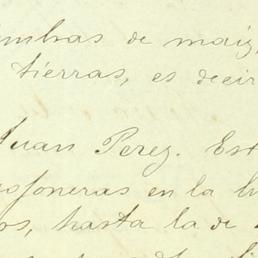 mbras de maiz,
tierras, es decir
Juan Perez. Est
oneras en la
os, hasta la de